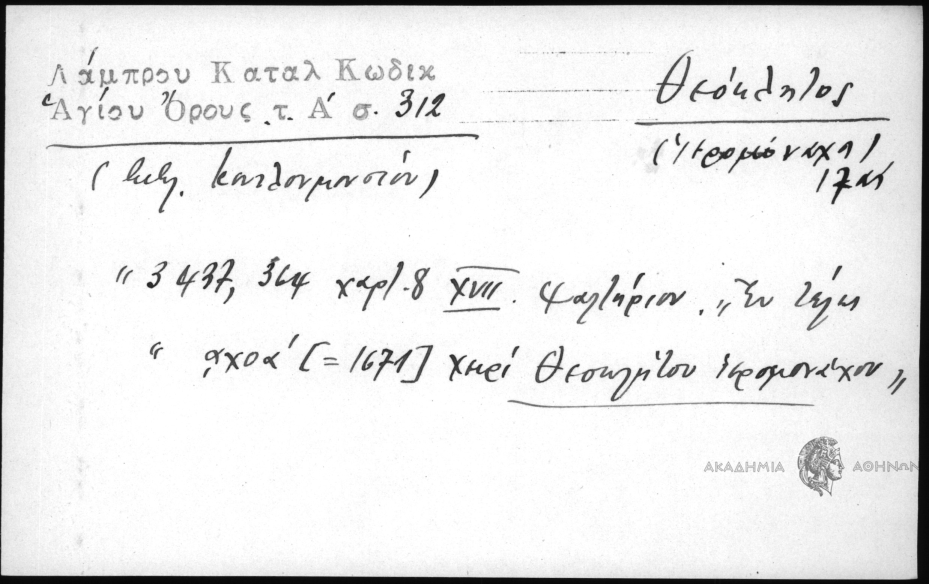 Λάμπρου Καταλ Κωδικ
Ἁγίου Ὄρους .τ. Α' σ. 312
Θεόκλητος
(ἱερομόναχος)
17ος
(βιβ. Κουτλουμουσίου)
" 3437, 364 χαρτ. 8 XVII. Ψαλτήριον. „Ἐν τέλει
" ͵αχοα' [= 1671] χειρί Θεοκλήτου ἱερομονάχου „
ΑΚΑΔΗΜΙΑ ΑΘΗΝΩΝ